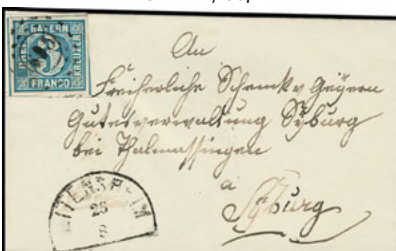 BAYERN
DREI
KREUZER
FRANCO
An
Freiherrliche Schenk v Geyern
Gutsverwaltung Syburg
bei Thalmassingen
a
Syburg
26